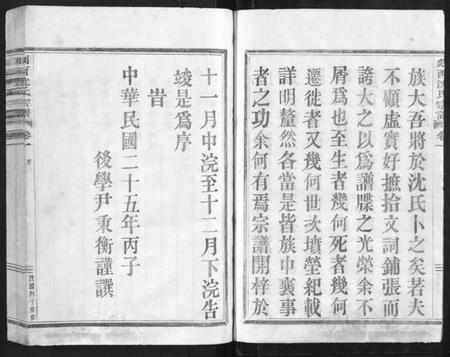 剡西沈氏宗譜 卷一
族大吾將於沈氏卜之矣若夫
不顧虛實好摭拾文詞鋪張而
誇大之以爲譜牒之光榮余不
屑爲也至生者幾何死者幾何
遷徙者又幾何世次墳塋紀載
詳明釐然各當是皆族中襄事
者之功余何有焉宗譜開梓於
十一月中浣至十二月下浣告
竣是爲序
旹
中華民國二十五年丙子
後學尹秉衡謹譔
剡西沈氏宗譜 卷一 序
民國丙子重修